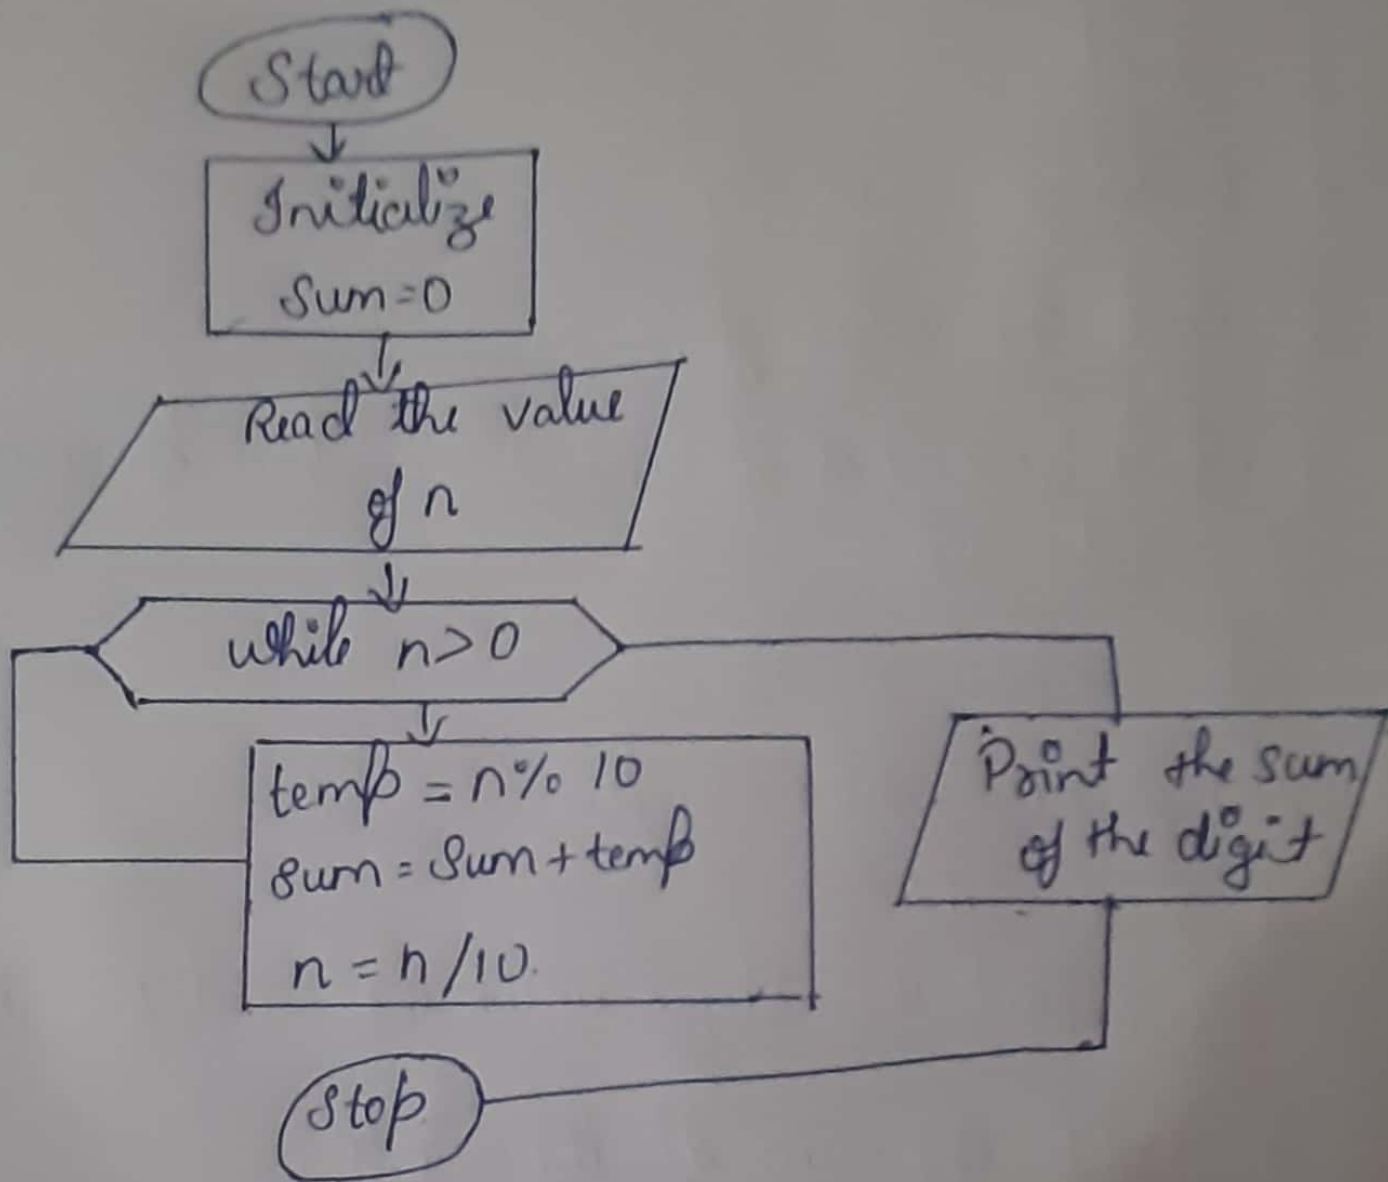 Start
Initialize
Sum=0
Read the value
of n
while n>0
temp = n% 10
sum = Sum + temp
n = n/10.
Print the sum
of the digit
Stop